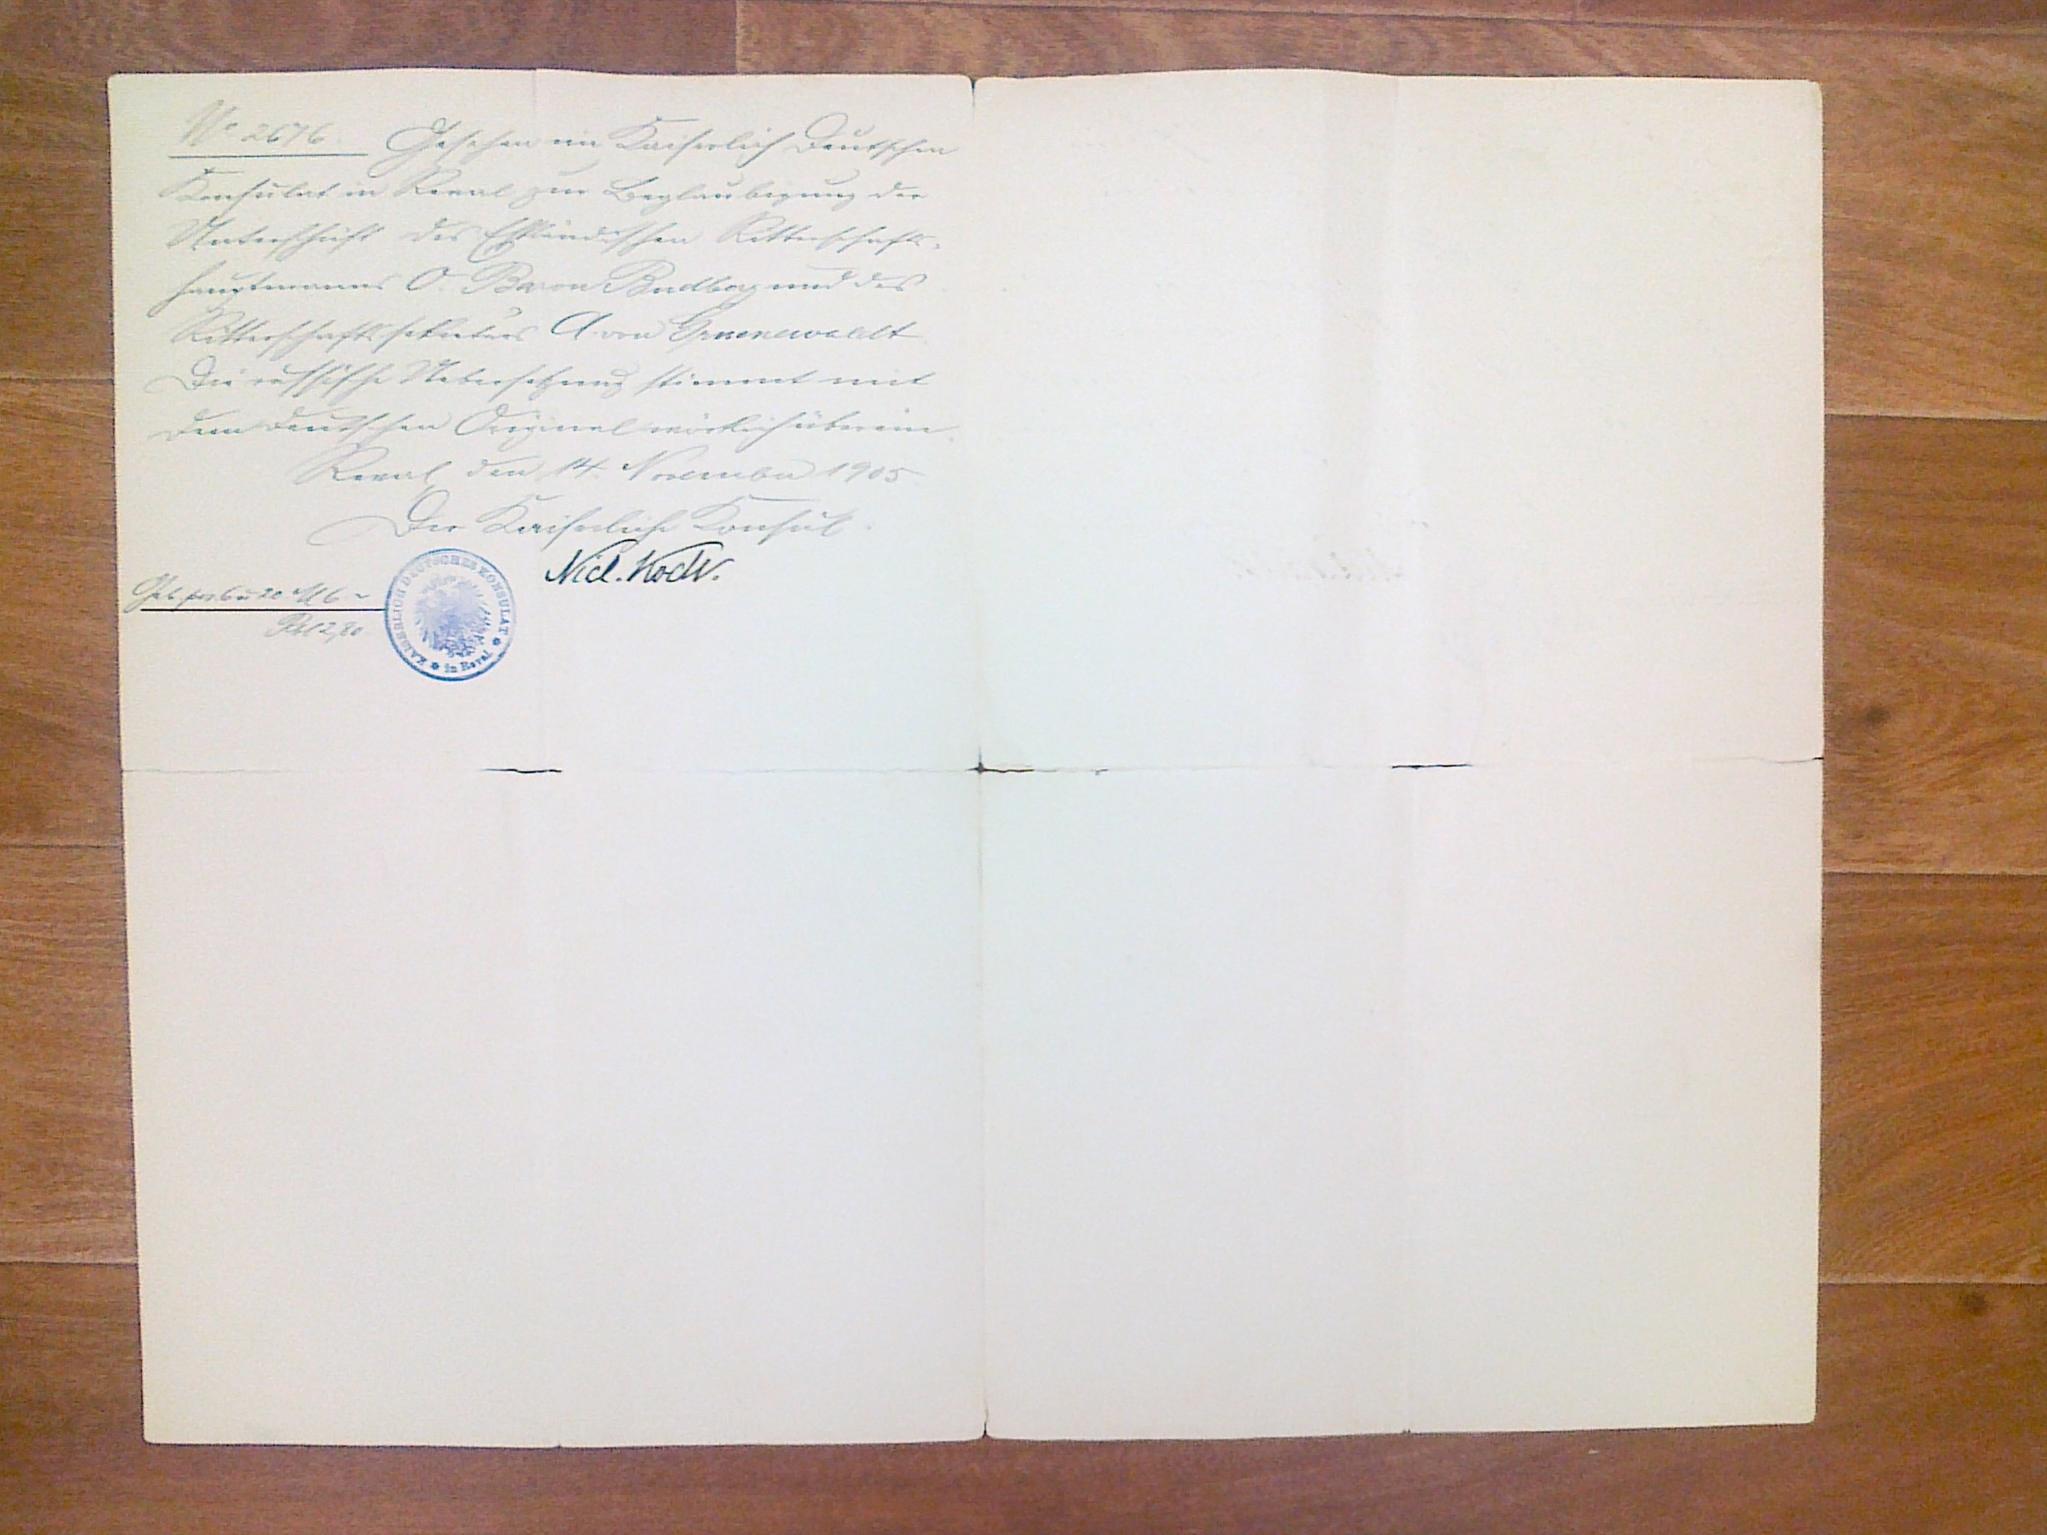 No 2676. Gesehen im Kaiserlich Deutschen
Konsulat in Reval zur Beglaubigung der
Unterschrift des Estländischen Ritterschafts-
hauptmanns O. Baron Budberg und des
Ritterschaftssekretärs A. von Gruenewaldt.
Die russische Uebersetzung stimmt mit
dem deutschen Original wörtlich überein.
Reval, den 14. November 1905.
Der Kaiserliche Konsul.
Nicl. Koch.
20 M 6 –
Rbl 2,80
KAISERLICH DEUTSCHES KONSULAT
in Reval